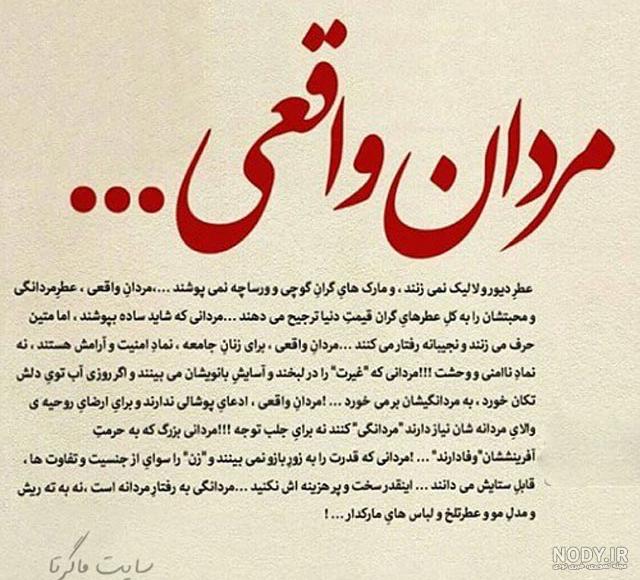 مردان واقعی ...
عطر دیور و لالیک نمی زنند ، و مارک هايِ گرانِ گوچی و ورساچه نمی پوشند ...،مردانِ واقعی ، عطرِمردانگی
و محبتشان را به کلِ عطرهايِ گران قیمتِ دنیا ترجیح می دهند ...مردانی که شاید ساده بپوشند ، اما متین
حرف می زنند و نجیبانه رفتار می کنند ...مردانِ واقعی ، برای زنانِ جامعه ، نمادِ امنیت و آرامش هستند ، نه
نمادِ ناامنی و وحشت !!!مردانی که "غیرت" را در لبخند و آسایشِ بانویشان می بینند و اگر روزی آب تويِ دلش
تکان خورد ، به مردانگیشان بر می خورد ... !مردانِ واقعی ، ادعايِ پوشالی ندارند و برايِ ارضايِ روحیه ی
والايِ مردانه شان نیاز دارند "مردانگی" کنند نه برايِ جلب توجه !!!مردانی بزرگ که به حرمتِ
آفرینششان "وفادارند" ... !مردانی که قدرت را به زورِ بازو نمی بینند و "زن" را سوايِ از جنسیت و تفاوت ها ،
قابلِ ستایش می دانند ... اینقدر سخت و پر هزینه اش نکنید ...مردانگی به رفتارِ مردانه است ،نه به ته ریش
و مدلِ مو و عطرِتلخ و لباس هايِ مارکدار ... !
سایت ماگرتا
NODY.IR